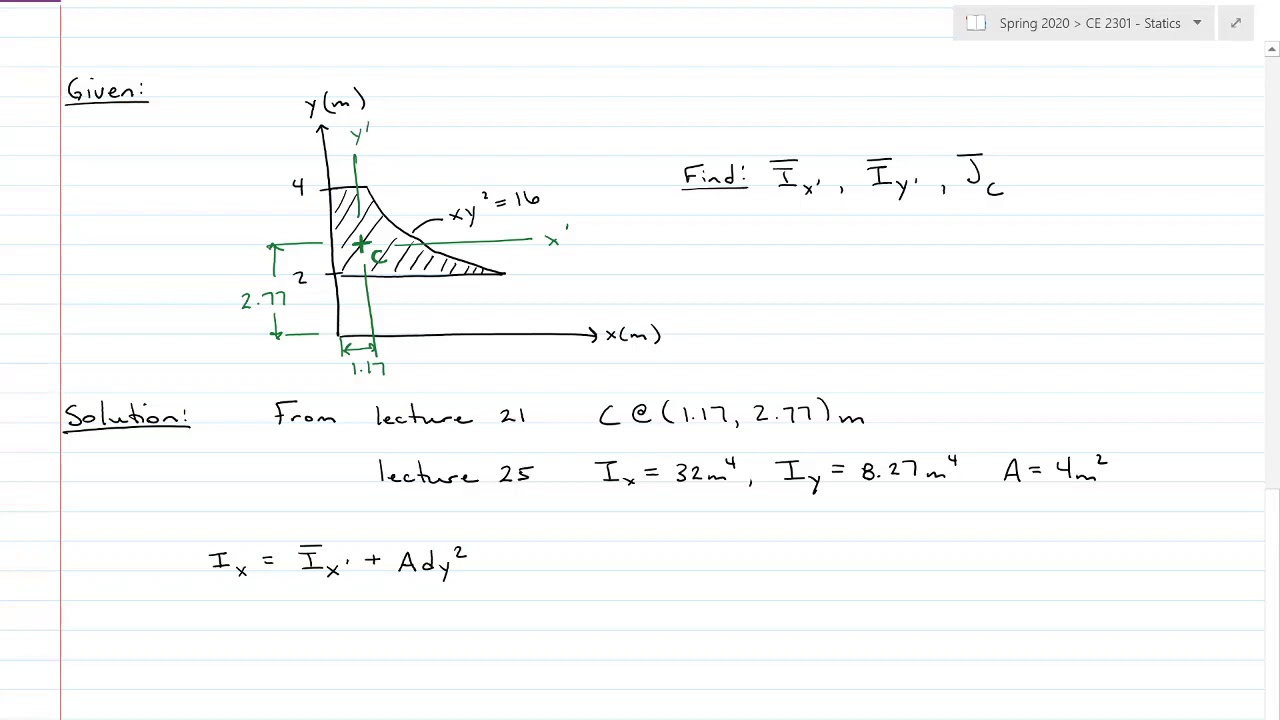 Spring 2020 > CE 2301 - Statics
Given:
y(m)
y'
4
xy² = 16
x'
C
2
2.77
x(m)
1.17
Find: I̅x' , I̅y' , J̅C
Solution: From lecture 21 C @ (1.17, 2.77) m
lecture 25 Ix = 32m⁴, Iy = 8.27m⁴ A = 4m²
Ix = I̅x' + Ady²